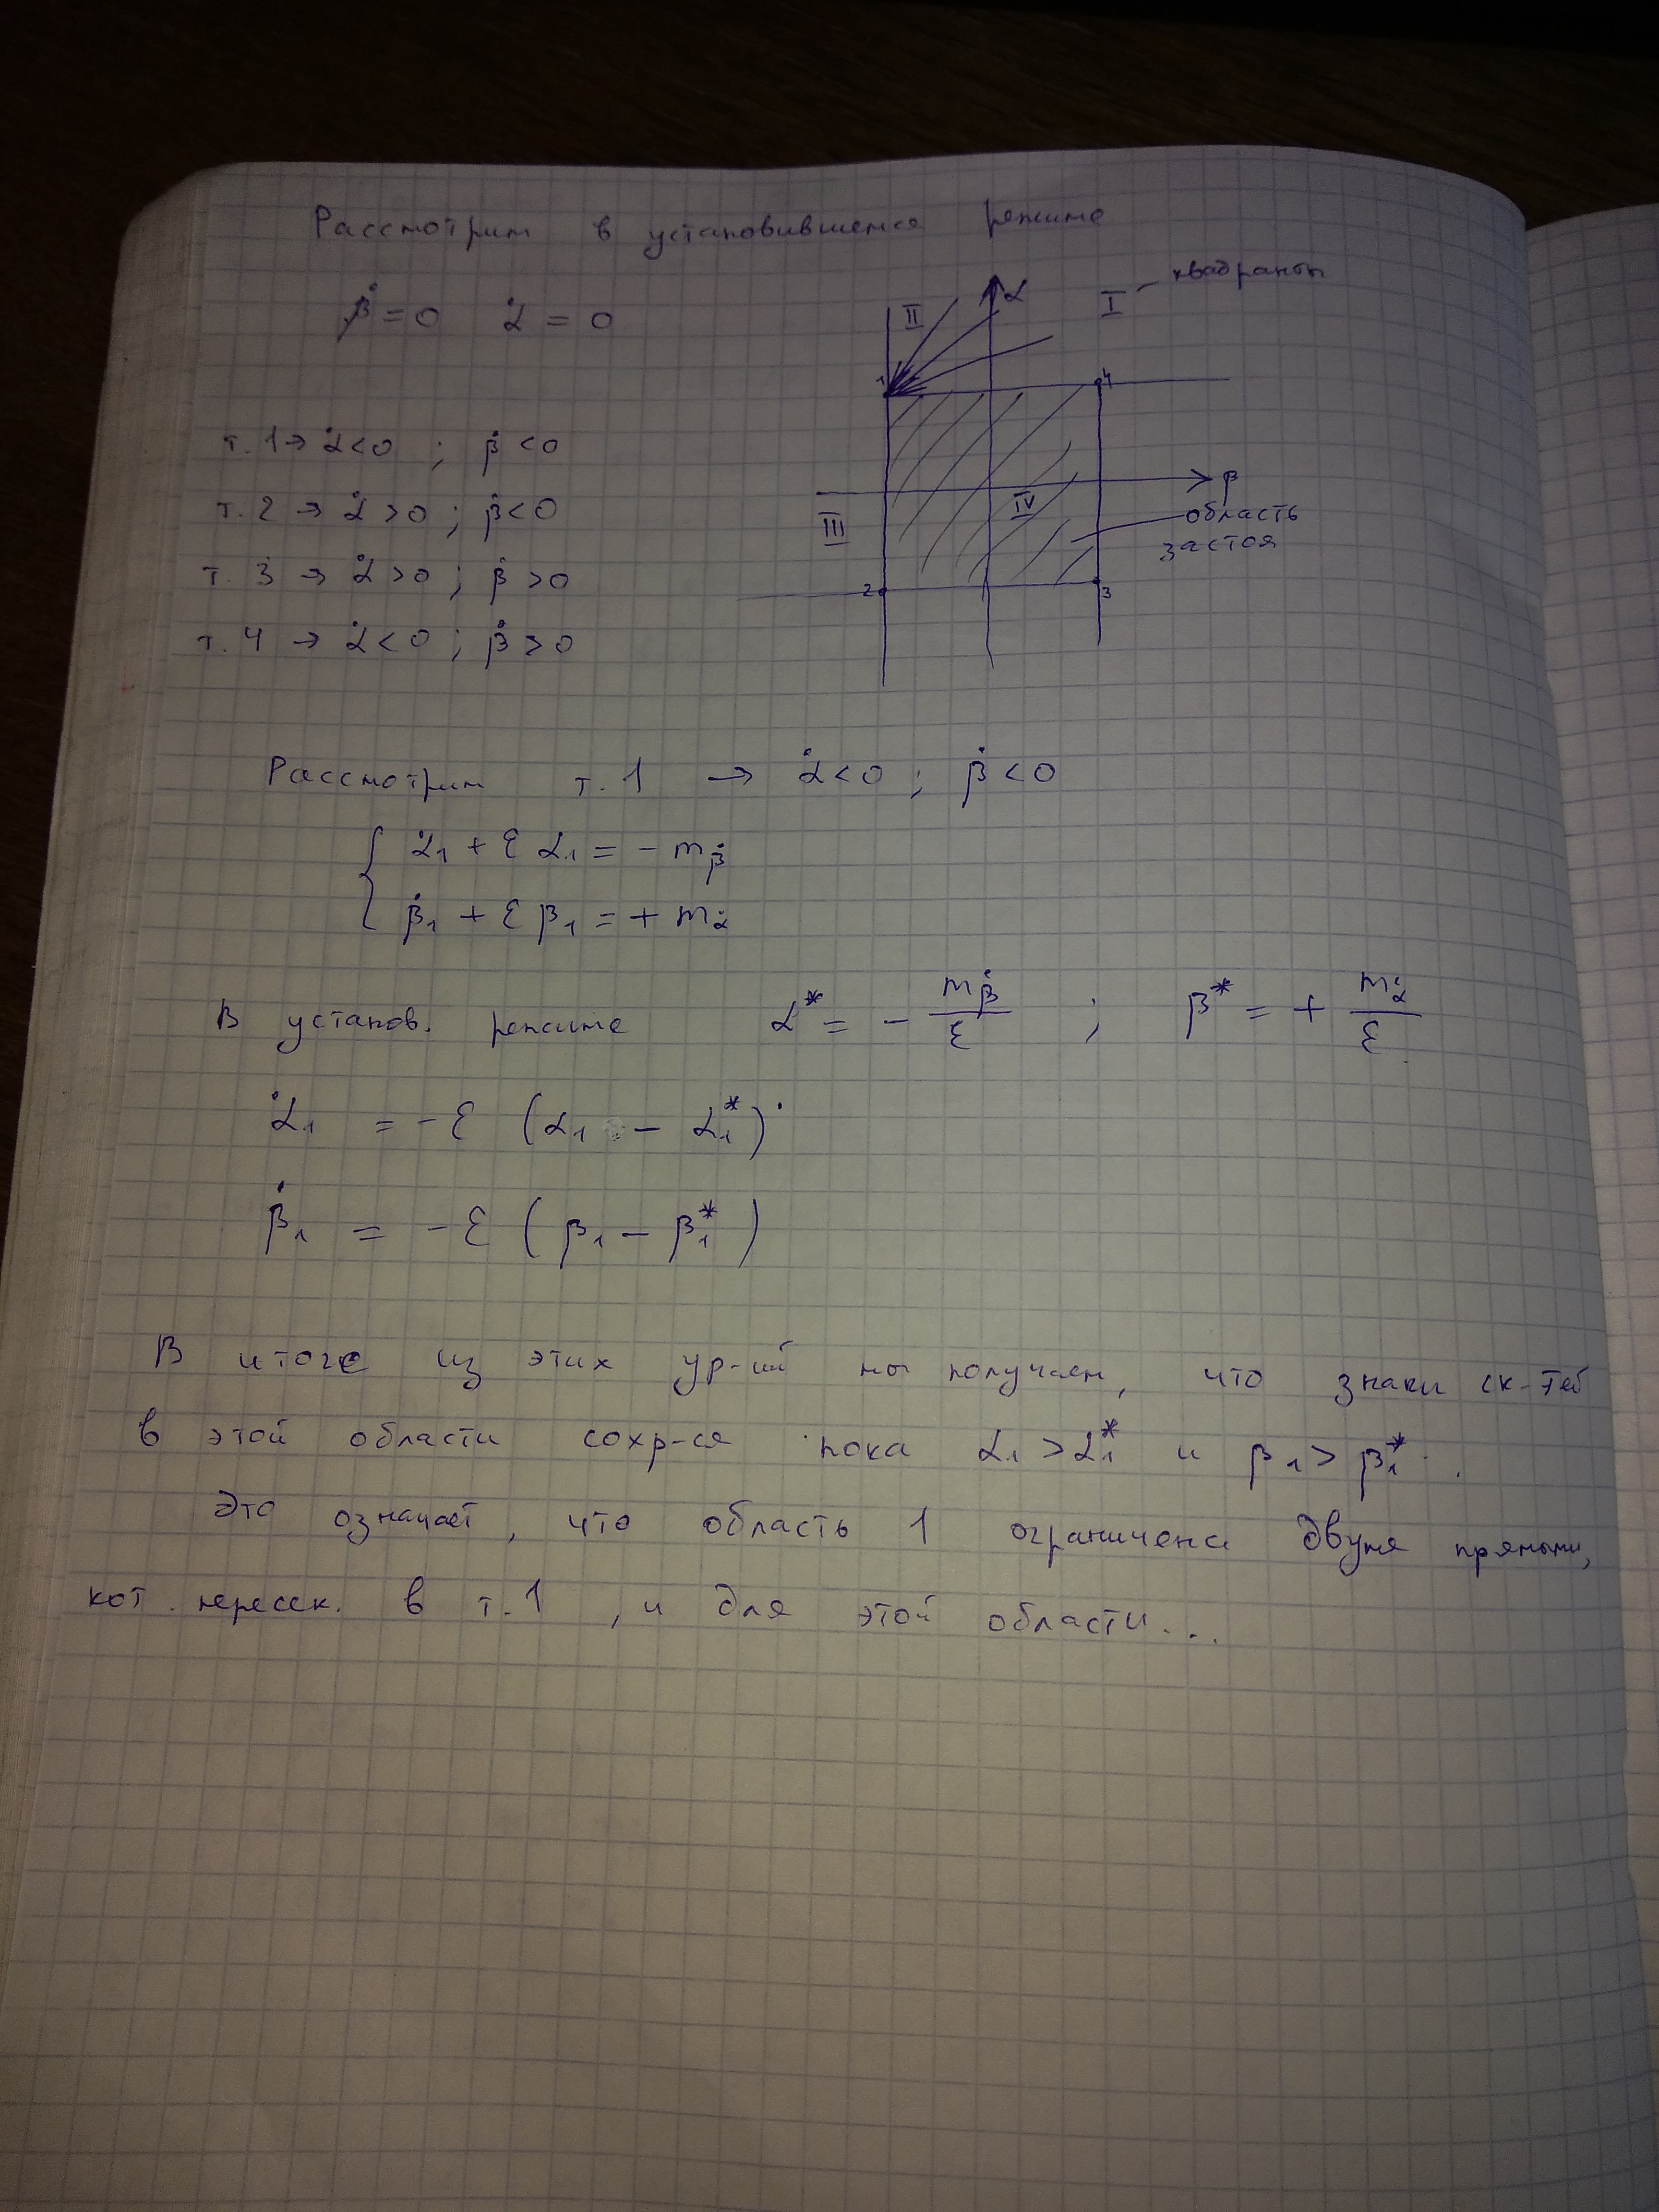 Рассмотрим в установившемся режиме
β̇ = 0 α̇ = 0
α
I
квадранты
II
1
4
т. 1 → α̇ < 0 ; β̇ < 0
т. 2 → α̇ > 0 ; β̇ < 0
т. 3 → α̇ > 0 ; β̇ > 0
т. 4 → α̇ < 0 ; β̇ > 0
β
III
IV
область
застоя
2
3
Рассмотрим т. 1 → α̇ < 0 ; β̇ < 0
α̇₁ + ε α₁ = - m_β̇
β̇₁ + ε β₁ = + m_α̇
В установ. режиме α* = - m_β̇ / ε ; β* = + m_α̇ / ε
α̇₁ = - ε (α₁ - α₁*)
β̇₁ = - ε (β₁ - β₁*)
В итоге из этих ур-ий мы получаем, что знаки ск-тей
в этой области сохр-ся пока α₁ > α₁* и β₁ > β₁*.
Это означает, что область 1 ограничена двумя прямыми,
кот. пересек. в т. 1, и для этой области...